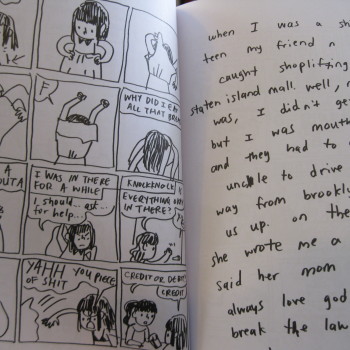 WHY DID I EAT
ALL THAT
A
OUTA
I WAS IN THERE
FOR A WHILE
I should.. ask..
for help...
KNOCKNOCK
EVERYTHING OK
IN THERE?
YAHH YOU PIECE
OF SHIT
CREDIT OR DE
CREDIT
when I was a sh
teen my friend n
caught shoplifting
staten island mall. well,
was, I didn't ge
but I was mouth
and they had to
uncle to drive
way from brookly
us up. on the
she wrote me a
said her mom
always love god
break the law